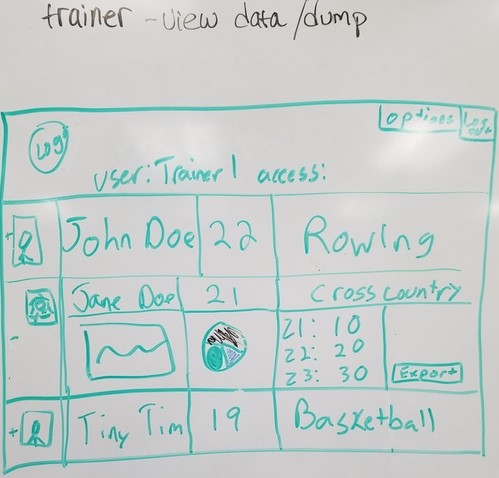 trainer - view data/dump
options
Log out
LOGO
user: Trainer 1 access:
+ John Doe 22 Rowing
Jane Doe 21 Cross country
-
Z1: 10
Z2: 20
Z3: 30
Export
+ Tiny Tim 19 Basketball